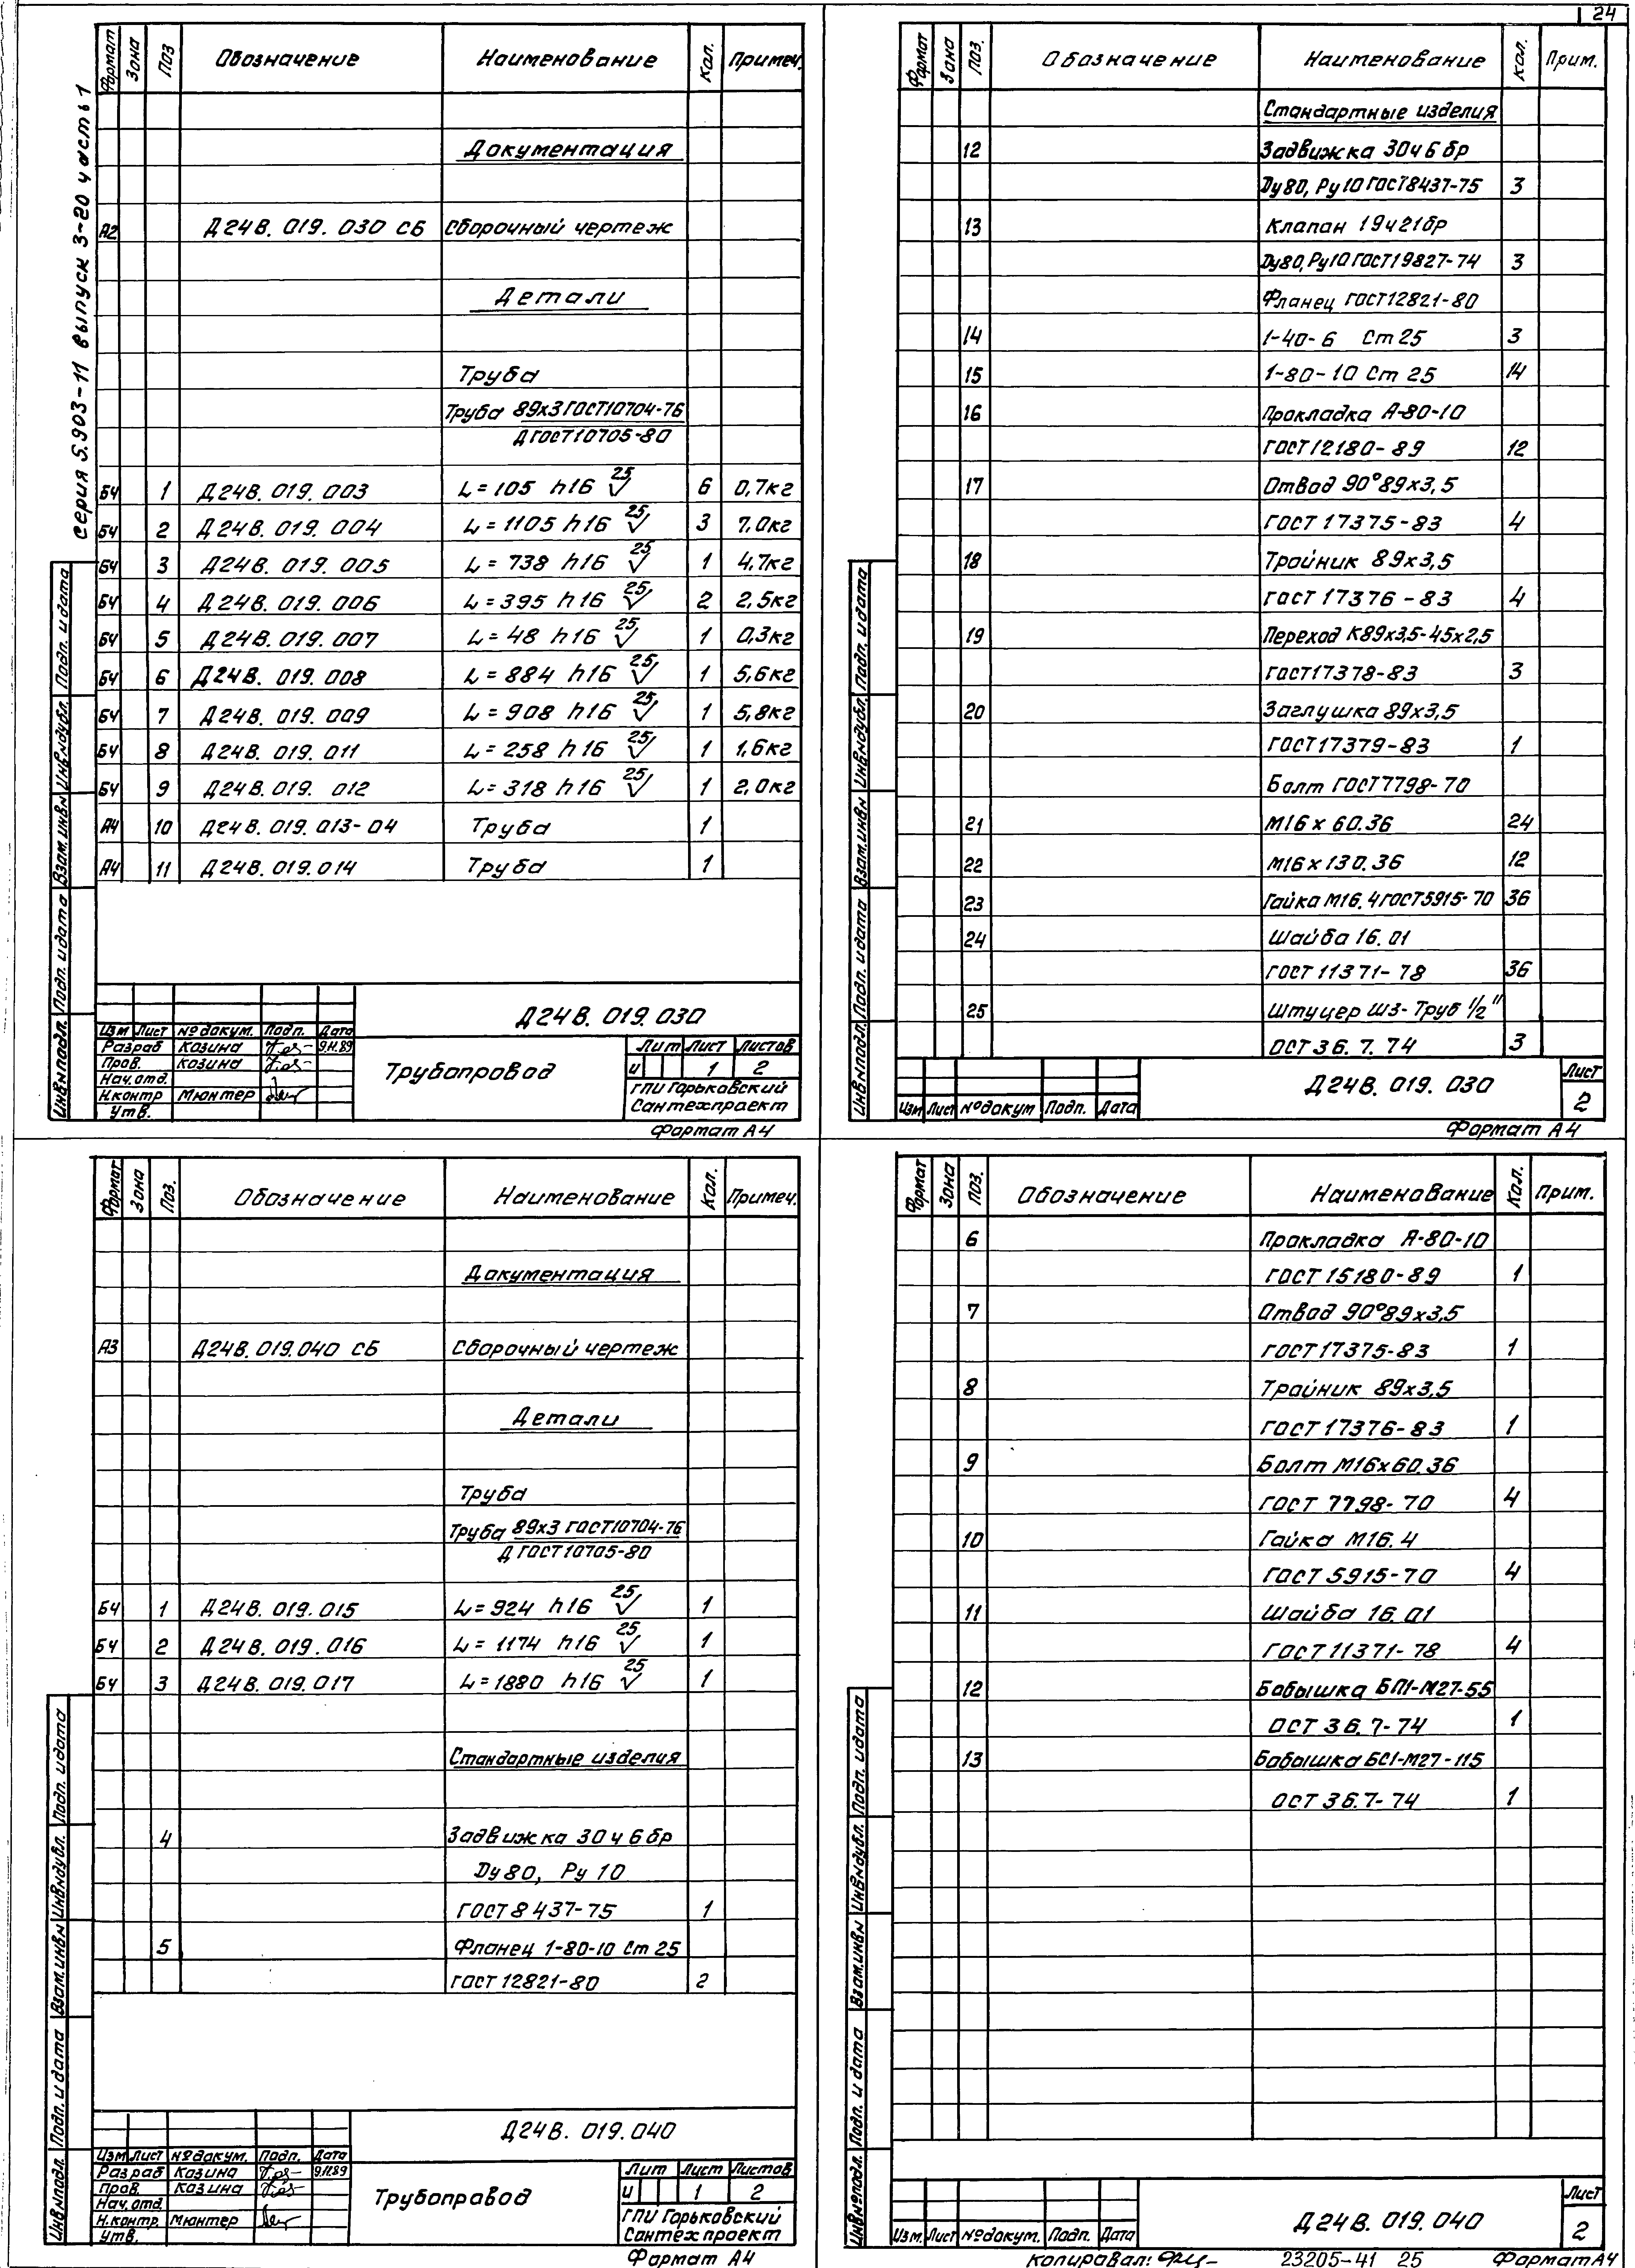 24
серия 5.903-11 выпуск 3-20 часть 1
Формат Зона Поз. Обозначение Наименование Кол. Примеч.
Документация
А2 Д24В. 019. 030 СБ Сборочный чертеж
Детали
Труба
Труба 89х3 ГОСТ10704-76
Д ГОСТ10705-80
БЧ 1 Д24В. 019. 003 L=105 h16 25 6 0,7кг
БЧ 2 Д24В. 019. 004 L=1105 h16 25 3 7,0кг
БЧ 3 Д24В. 019. 005 L=738 h16 25 1 4,7кг
БЧ 4 Д24В. 019. 006 L=395 h16 25 2 2,5кг
БЧ 5 Д24В. 019. 007 L=48 h16 25 1 0,3кг
БЧ 6 Д24В. 019. 008 L=884 h16 25 1 5,6кг
БЧ 7 Д24В. 019. 009 L=908 h16 25 1 5,8кг
БЧ 8 Д24В. 019. 011 L=258 h16 25 1 1,6кг
БЧ 9 Д24В. 019. 012 L=318 h16 25 1 2,0кг
А4 10 Д24В. 019. 013-04 Труба 1
А4 11 Д24В. 019. 014 Труба 1
Инв№подл. Подп. и дата Взам.инв№ Инв№дубл. Подп. и дата
Д24В. 019. 030
Изм Лист № докум. Подп. Дата
Разраб Козина 9.11.89
Пров. Козина
Нач. отд.
Н.контр Мюнтер
Утв.
Трубопровод
Лит Лист Листов
И 1 2
ГПИ Горьковский
Сантехпроект
Формат А4
Формат Зона Поз. Обозначение Наименование Кол. Прим.
Стандартные изделия
12 Задвижка 30ч6бр
Ду80, Ру10 ГОСТ8437-75 3
13 Клапан 19ч21бр
Ду80, Ру10 ГОСТ19827-74 3
Фланец ГОСТ12821-80
14 1-40-6 Ст 25 3
15 1-80-10 Ст 25 14
16 Прокладка А-80-10
ГОСТ12180-89 12
17 Отвод 90°89х3,5
ГОСТ 17375-83 4
18 Тройник 89х3,5
ГОСТ 17376-83 4
19 Переход К89х3,5-45х2,5
ГОСТ17378-83 3
20 Заглушка 89х3,5
ГОСТ17379-83 1
Болт ГОСТ7798-70
21 М16х60.36 24
22 М16х130.36 12
23 Гайка М16.4 ГОСТ5915-70 36
24 Шайба 16.01
ГОСТ 11371-78 36
25 Штуцер ШЗ-Труб 1/2"
ОСТ 36. 7. 74 3
Инв№подл. Подп. и дата Взам.инв№ Инв№дубл. Подп. и дата
Изм Лист № докум Подп. Дата
Д24В. 019. 030
Лист
2
Формат А4
Формат Зона Поз. Обозначение Наименование Кол. Примеч.
Документация
А3 Д24В. 019. 040 СБ Сборочный чертеж
Детали
Труба
Труба 89х3 ГОСТ10704-76
Д ГОСТ10705-80
БЧ 1 Д24В. 019. 015 L=924 h16 25 1
БЧ 2 Д24В. 019. 016 L=1174 h16 25 1
БЧ 3 Д24В. 019. 017 L=1880 h16 25 1
Стандартные изделия
4 Задвижка 30ч6бр
Ду80, Ру 10
ГОСТ8437-75 1
5 Фланец 1-80-10 Ст 25
ГОСТ 12821-80 2
Инв№подл. Подп. и дата Взам.инв№ Инв№дубл. Подп. и дата
Д24В. 019. 040
Изм Лист № докум. Подп. Дата
Разраб Козина 9.11.89
Пров. Козина
Нач. отд.
Н.контр. Мюнтер
Утв.
Трубопровод
Лит Лист Листов
И 1 2
ГПИ Горьковский
Сантехпроект
Формат А4
Формат Зона Поз. Обозначение Наименование Кол. Прим.
6 Прокладка А-80-10
ГОСТ 15180-89 1
7 Отвод 90°89х3,5
ГОСТ17375-83 1
8 Тройник 89х3,5
ГОСТ 17376-83 1
9 Болт М16х60.36
ГОСТ 7798-70 4
10 Гайка М16.4
ГОСТ 5915-70 4
11 Шайба 16.01
ГОСТ 11371-78 4
12 Бобышка БП1-М27-55
ОСТ 36.7-74 1
13 Бобышка БС1-М27-115
ОСТ 36.7-74 1
Инв№подл. Подп. и дата Взам.инв№ Инв№дубл. Подп. и дата
Изм. Лист № докум. Подп. Дата
Д24В. 019. 040
Лист
2
Копировал: 23205-41 25 Формат А4